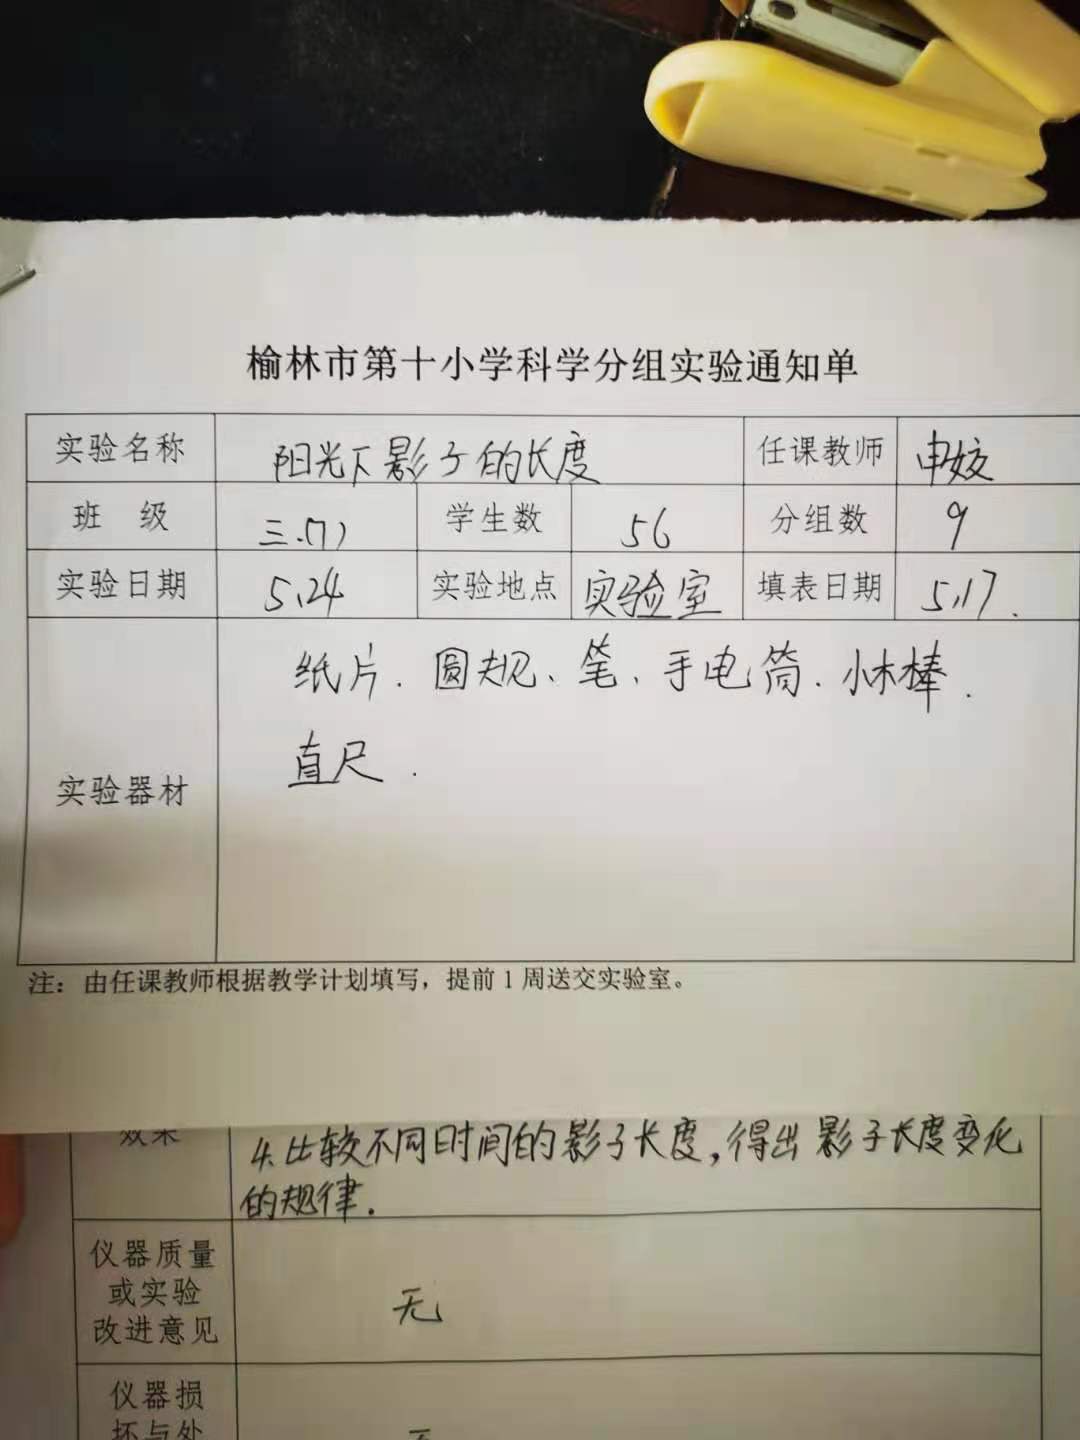 榆林市第十小学科学分组实验通知单
实验名称 阳光下影子的长度 任课教师 申姣
班 级 三.(7) 学生数 56 分组数 9
实验日期 5.24 实验地点 实验室 填表日期 5.17.
纸片、圆规、笔、手电筒、小木棒、
直尺.
实验器材
注：由任课教师根据教学计划填写，提前1周送交实验室。
效果
4.比较不同时间的影子长度,得出影子长度变化
的规律.
仪器质量
或实验
改进意见
无
仪器损
坏与处